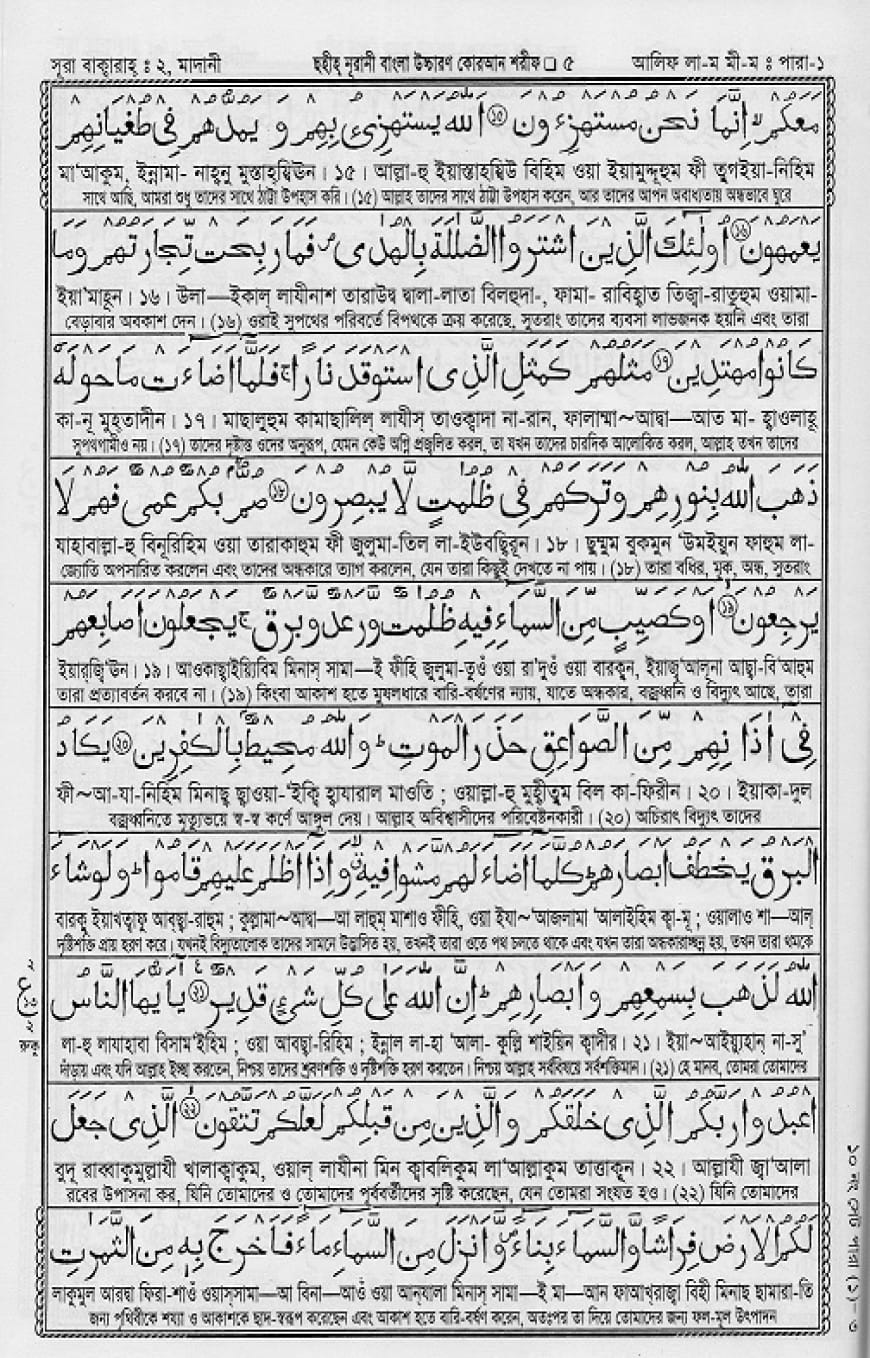 সূরা বাক্বারাহ্ : ২, মাদানী
ছহীহ্ নূরানী বাংলা উচ্চারণ কোরআন শরীফ □ ৫
আলিফ লা-ম মী-ম : পারা-১
مَعَكُمْ ۙ إِنَّمَا نَحْنُ مُسْتَهْزِءُونَ ⑮ اللهُ يَسْتَهْزِئُ بِهِمْ وَ يَمُدُّهُمْ فِي طُغْيَانِهِمْ
মা'আকুম, ইন্নামা- নাহ্‌নু মুস্তাহ্‌যিউন। ১৫। আল্লা-হু ইয়াস্তাহ্‌যিউ বিহিম ওয়া ইয়ামুদ্দুহুম ফী তুগ্‌ইয়া-নিহিম
সাথে আছি, আমরা শুধু তাদের সাথে ঠাট্টা উপহাস করি। (১৫) আল্লাহ তাদের সাথে ঠাট্টা উপহাস করেন, আর তাদের আপন অবাধ্যতায় অন্ধভাবে ঘুরে
يَعْمَهُونَ ⑯ أُولَئِكَ الَّذِينَ اشْتَرَوُا الضَّلَلَةَ بِالْهُدَى ص فَمَا رَبِحَتْ تِّجَارَتُهُمْ وَمَا
ইয়া'মাহূন। ১৬। উলা—ইকাল্ লাযীনাশ তারাউদ্ব দ্বালা-লাতা বিলহুদা-, ফামা- রাবিহাত তিজ্বা-রাতুহুম ওয়ামা-
বেড়াবার অবকাশ দেন। (১৬) ওরাই সুপথের পরিবর্তে বিপথকে ক্রয় করেছে, সুতরাং তাদের ব্যবসা লাভজনক হয়নি এবং তারা
كَانُوا مُهْتَدِينَ ⑰ مَثَلُهُمْ كَمَثَلِ الَّذِي اسْتَوْقَدَ نَارًا ج فَلَمَّا أَضَاءَتْ مَا حَوْلَهُ
কা-নূ মুহ্‌তাদীন। ১৭। মাছালুহুম কামাছালিল্ লাযীস্ তাওক্বাদা না-রান, ফালাম্মা~আদ্বা—আত মা- হাওলাহূ
সুপথগামীও নয়। (১৭) তাদের দৃষ্টান্ত ওদের অনুরূপ, যেমন কেউ অগ্নি প্রজ্বলিত করল, তা যখন তাদের চারদিক আলোকিত করল, আল্লাহ তখন তাদের
ذَهَبَ اللهُ بِنُورِهِمْ وَتَرَكَهُمْ فِي ظُلُمَتٍ لَّا يُبْصِرُونَ ⑱ صُمٌّ بُكْمٌ عُمْيٌ فَهُمْ لَا
যাহাবাল্লা-হু বিনূরিহিম ওয়া তারাকাহুম ফী জুলুমা-তিল লা-ইউবছিরূন। ১৮। ছুম্মুম বুকমুন 'উমইয়ুন ফাহুম লা-
জ্যোতি অপসারিত করলেন এবং তাদের অন্ধকারে ত্যাগ করলেন, যেন তারা কিছুই দেখতে না পায়। (১৮) তারা বধির, মূক, অন্ধ, সুতরাং
يَرْجِعُونَ ⑲ أَوْ كَصَيِّبٍ مِّنَ السَّمَاءِ فِيهِ ظُلُمَتٌ وَّرَعْدٌ وَّبَرْقٌ ج يَجْعَلُونَ أَصَابِعَهُمْ
ইয়ারজি'উন। ১৯। আওকাছাইয়্যিবিম মিনাস্ সামা—ই ফীহি জুলুমা-তুওঁ ওয়া রা'দুওঁ ওয়া বারকুন, ইয়াজ্ব'আল্‌না আছ্বা-বি'আহুম
তারা প্রত্যাবর্তন করবে না। (১৯) কিংবা আকাশ হতে মুষলধারে বারি-বর্ষণের ন্যায়, যাতে অন্ধকার, বজ্রধ্বনি ও বিদ্যুৎ আছে, তারা
فِي أَذَانِهِمْ مِّنَ الصَّوَاعِقِ حَذَرَ الْمَوْتِ ط وَاللهُ مُحِيطٌ بِالْكَفِرِينَ ⑳ يَكَادُ
ফী~আ-যা-নিহিম মিনাছ্ ছ্বাওয়া-'ইক্বি হাযারাল মাওতি ; ওয়াল্লা-হু মুহীতুম বিল কা-ফিরীন। ২০। ইয়াকা-দুল
বজ্রধ্বনিতে মৃত্যুভয়ে স্ব-স্ব কর্ণে আঙ্গুল দেয়। আল্লাহ অবিশ্বাসীদের পরিবেষ্টনকারী। (২০) অচিরাৎ বিদ্যুৎ তাদের
الْبَرْقُ يَخْطَفُ أَبْصَارَهُمْ ط كُلَّمَا أَضَاءَ لَهُمْ مَّشَوْا فِيهِ وَإِذَا أَظْلَمَ عَلَيْهِمْ قَامُوا ط وَلَوْ شَاءَ
বারকু ইয়াখত্বাফু আবছ্বা-রাহুম ; কুল্লামা~আদ্বা—আ লাহুম্ মাশাও ফীহি, ওয়া ইযা~'আজলামা 'আলাইহিম ক্বা-মূ ; ওয়ালাও শা—আল্
দৃষ্টিশক্তি প্রায় হরণ করে। যখনই বিদ্যুতালোক তাদের সামনে উদ্ভাসিত হয়, তখনই তারা ওতে পথ চলতে থাকে এবং যখন তারা অন্ধকারাচ্ছন্ন হয়, তখন তারা থমকে
اللهُ لَذَهَبَ بِسَمْعِهِمْ وَ أَبْصَارِهِمْ ط إِنَّ اللهَ عَلَى كُلِّ شَيْءٍ قَدِيرٌ ㉑ يَا يُّهَا النَّاسُ
লা-হু লাযাহাবা বিসাম'ইহিম ; ওয়া আবছ্বা-রিহিম ; ইন্নাল লা-হা 'আলা- কুল্লি শাইয়িন ক্বাদীর। ২১। ইয়া~আইয়্যুহান্ না-সু'
দাঁড়ায় এবং যদি আল্লাহ ইচ্ছা করতেন, নিশ্চয় তাদের শ্রবণশক্তি ও দৃষ্টিশক্তি হরণ করতেন। নিশ্চয় আল্লাহ সর্ববিষয়ে সর্বশক্তিমান। (২১) হে মানব, তোমরা তোমাদের
اعْبُدُوا رَبَّكُمُ الَّذِي خَلَقَكُمْ وَالَّذِينَ مِنْ قَبْلِكُمْ لَعَلَّكُمْ تَتَّقُونَ ㉒ الَّذِي جَعَلَ
বুদূ রাব্বাকুমুল্লাযী খালাক্বাকুম, ওয়াল্ লাযীনা মিন ক্বাবলিকুম লা'আল্লাকুম তাত্তাকূন। ২২। আল্লাযী জ্বা'আলা
রবের উপাসনা কর, যিনি তোমাদের ও তোমাদের পূর্ববর্তীদের সৃষ্টি করেছেন, যেন তোমরা সংযত হও। (২২) যিনি তোমাদের
لَكُمُ الْأَرْضَ فِرَاشًا وَّالسَّمَاءَ بِنَاءً وَّأَنْزَلَ مِنَ السَّمَاءِ مَاءً فَأَخْرَجَ بِهِ مِنَ الثَّمَرَتِ
লাকুমুল আরদ্বা ফিরা-শাওঁ ওয়াস্‌সামা—আ বিনা—আওঁ ওয়া আন্‌যালা মিনাস্ সামা—ই মা—আন ফাআখ্‌রাজ্বা বিহী মিনাছ ছামারা-তি
জন্য পৃথিবীকে শয্যা ও আকাশকে ছাদ-স্বরূপ করেছেন এবং আকাশ হতে বারি-বর্ষণ করেন, অতঃপর তা দিয়ে তোমাদের জন্য ফল-মূল উৎপাদন
রুকু
১০ নং সেট পারা (১)-৩